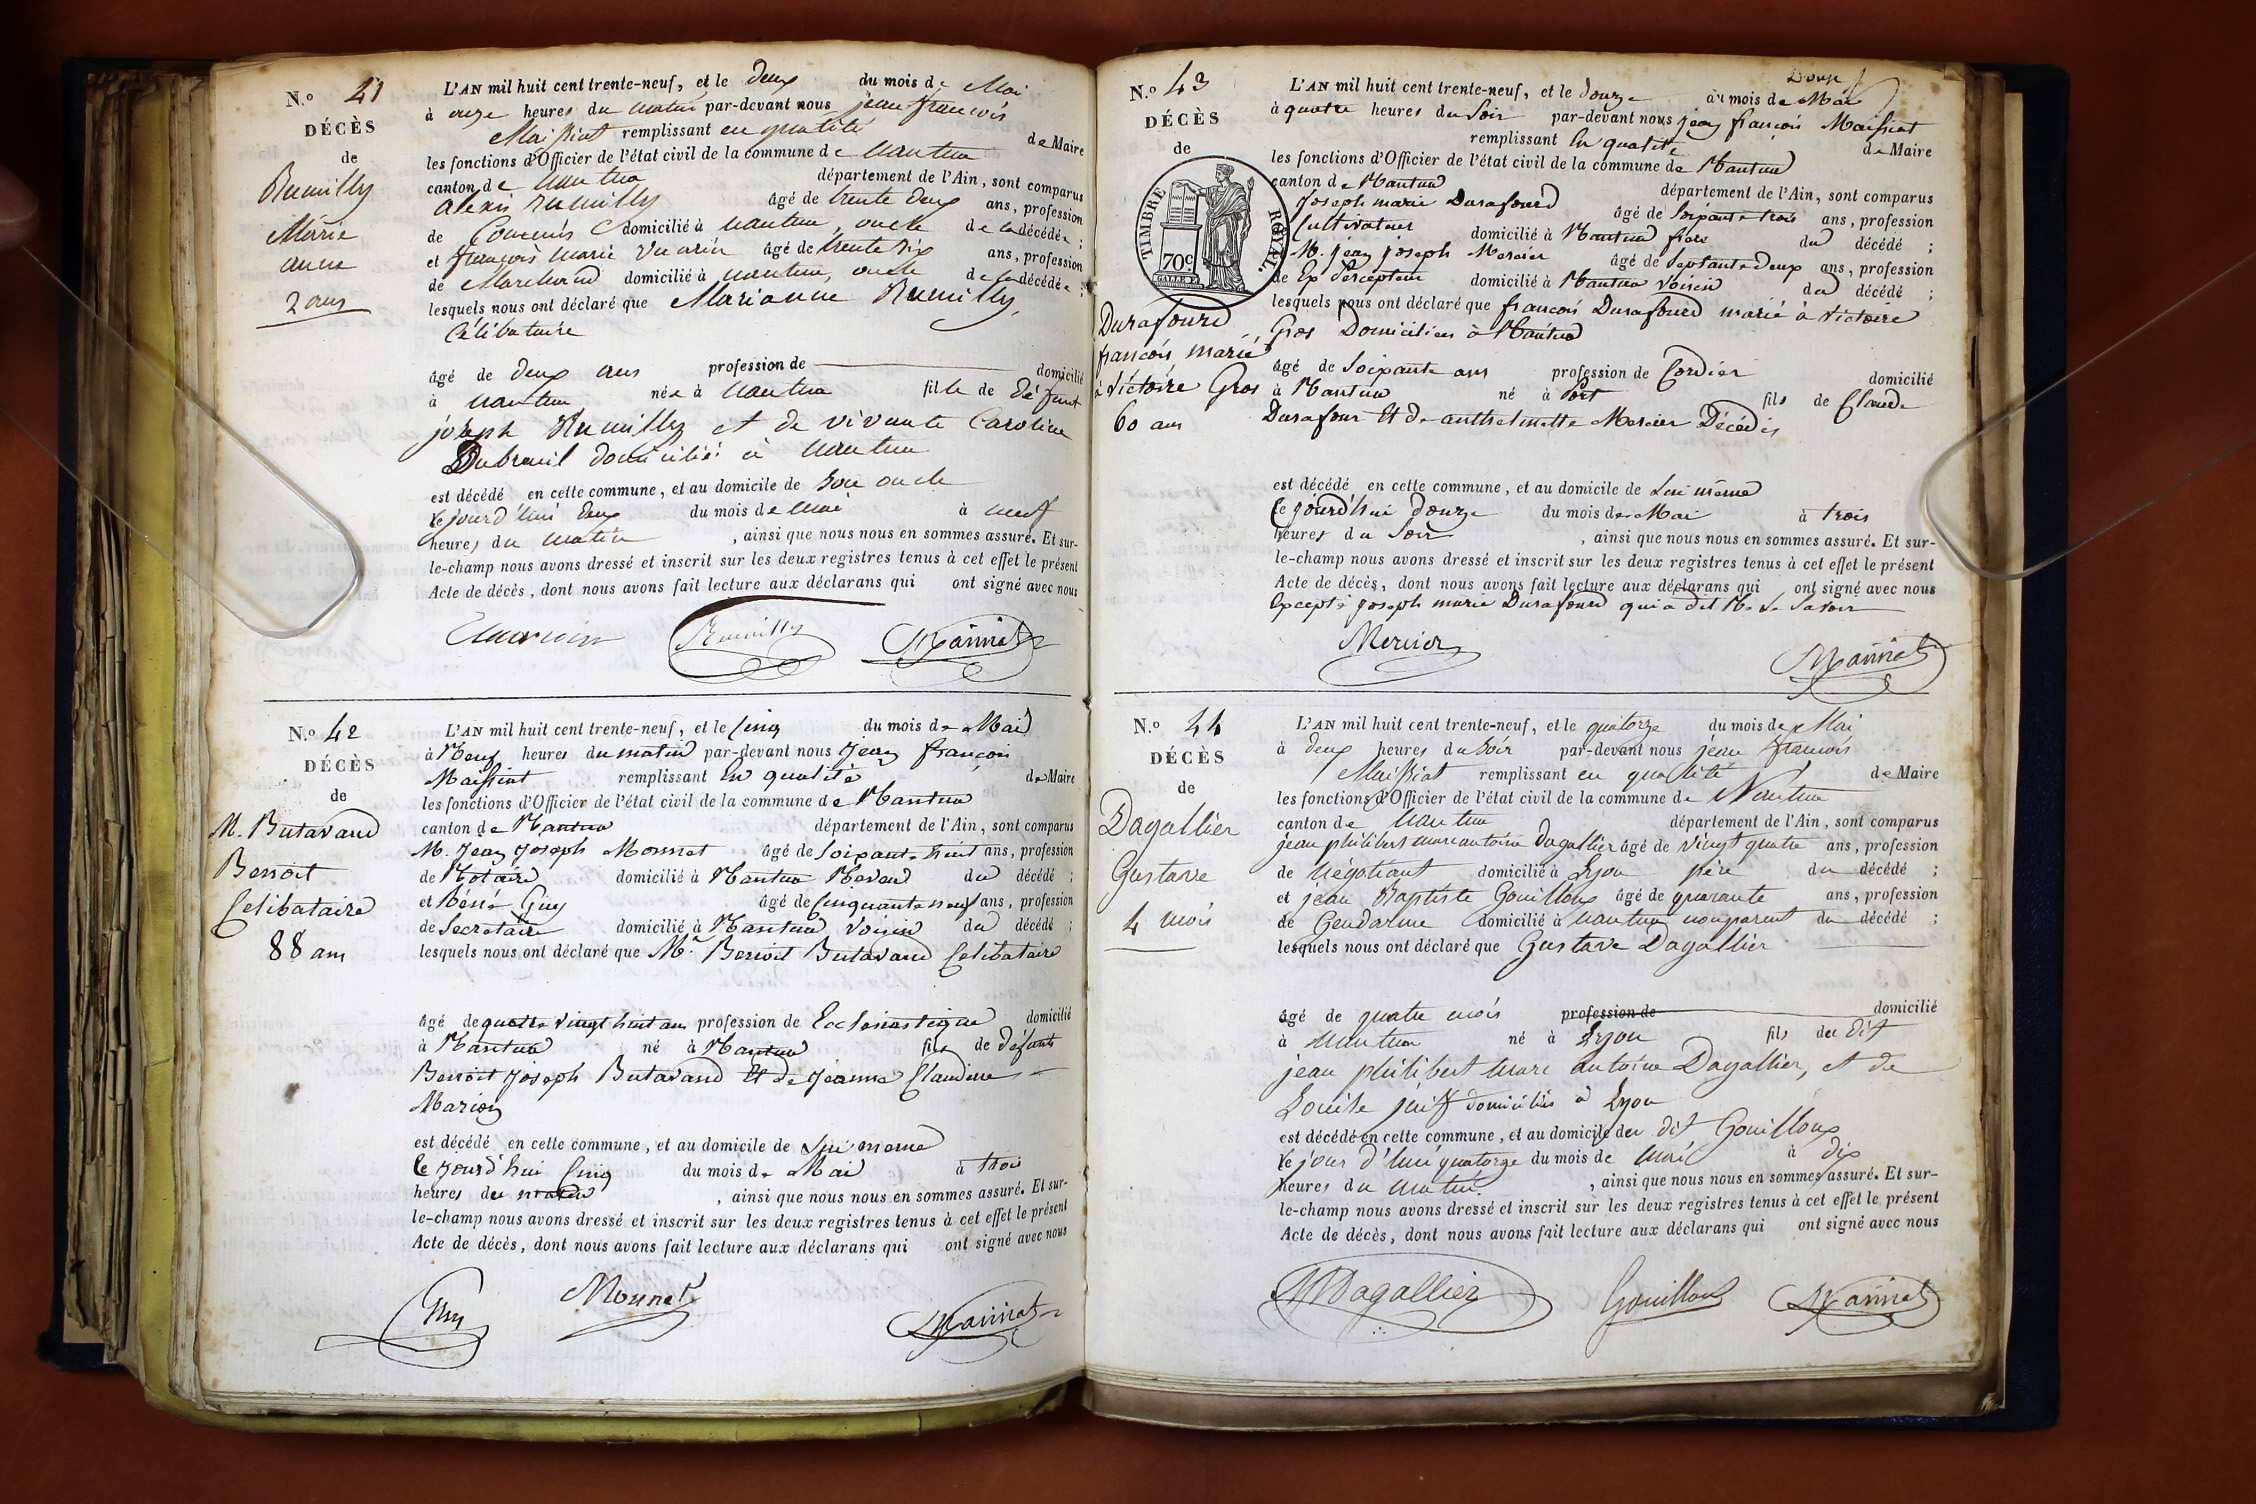 N.º 41
DÉCÈS
de
Rumilly
Marie
anne
2 ans
L'AN mil huit cent trente-neuf, et le deux du mois de Mai
à onze heures du matin par-devant nous jean françois
Maissiat remplissant en qualité de Maire
les fonctions d'Officier de l'état civil de la commune de nantua
canton de nantua département de l'Ain, sont comparus
alexis rumilly âgé de trente deux ans, profession
de Commis domicilié à nantua, oncle de la décédée ;
et françois marie âgé de trente six ans, profession
de Marchand domicilié à nantua, oncle de la décédée ;
lesquels nous ont déclaré que Marianne Rumilly,
Célibataire
âgé de deux ans profession de domicilié
à nantua née à nantua fille de défunt
joseph Rumilly et de vivante Caroline
Dubreuil domicilié à nantua
est décédé en cette commune, et au domicile de son oncle
le jourd'hui deux du mois de mai à neuf
heures du matin , ainsi que nous nous en sommes assuré. Et sur-
le-champ nous avons dressé et inscrit sur les deux registres tenus à cet effet le présent
Acte de décès, dont nous avons fait lecture aux déclarans qui ont signé avec nous
Rumilly Maissiat
N.º 42
DÉCÈS
de
M. Butavand
Benoit
Celibataire
88 ans
L'AN mil huit cent trente-neuf, et le Cinq du mois de Mai
à Neuf heures du matin par-devant nous Jean françois
Maissiat remplissant En qualité de Maire
les fonctions d'Officier de l'état civil de la commune de Nantua
canton de Nantua département de l'Ain, sont comparus
M. Jean Joseph Monnet âgé de Soixante huit ans, profession
de Notaire domicilié à Nantua Neveu du décédé ;
et Réné Guy âgé de Cinquante neuf ans, profession
de Secrétaire domicilié à Nantua Voisin du décédé ;
lesquels nous ont déclaré que Mr Benoit Butavand Celibataire
âgé de quatre vingt huit ans profession de Ecclésiastique domicilié
à Nantua né à Nantua fils de défunts
Benoit Joseph Butavand Et de Jeanne Claudine
Marion
est décédé en cette commune, et au domicile de Lui même
le jourd'hui Cinq du mois de Mai à trois
heures du matin , ainsi que nous nous en sommes assuré. Et sur-
le-champ nous avons dressé et inscrit sur les deux registres tenus à cet effet le présent
Acte de décès, dont nous avons fait lecture aux déclarans qui ont signé avec nous
Guy Monnet Maissiat
N.º 43
DÉCÈS
de
TIMBRE ROYAL.
70c
Durafourd
françois, marié
à Victoire Gros
60 ans
Douze
L'AN mil huit cent trente-neuf, et le douze du mois de Mai
à quatre heures du Soir par-devant nous jean françois Maissiat
remplissant En qualité de Maire
les fonctions d'Officier de l'état civil de la commune de Nantua
canton de Nantua département de l'Ain, sont comparus
Joseph marie Durafourd âgé de Soixante trois ans, profession
Cultivateur domicilié à Nantua frère du décédé ;
M. jean joseph Mercier âgé de Septante deux ans, profession
de Ex Percepteur domicilié à Nantua Voisin du décédé ;
lesquels nous ont déclaré que françois Durafourd marié à Victoire
Gros Domiciliés à Nantua
âgé de Soixante ans profession de Cordier domicilié
à Nantua né à Port fils de Claude
Durafour Et de anthelmette Mercier Décédés
est décédé en cette commune, et au domicile de Lui même
le jourd'hui Douze du mois de Mai à trois
heures du Soir , ainsi que nous nous en sommes assuré. Et sur-
le-champ nous avons dressé et inscrit sur les deux registres tenus à cet effet le présent
Acte de décès, dont nous avons fait lecture aux déclarans qui ont signé avec nous
Excepté joseph marie Durafourd qui a dit Ne Le Savoir
Mercier Maissiat
N.º 44
DÉCÈS
de
Dagallier
Gustave
4 mois
L'AN mil huit cent trente-neuf, et le quatorze du mois de Mai
à deux heures du Soir par-devant nous jean françois
Maissiat remplissant en qualité de Maire
les fonctions d'Officier de l'état civil de la commune de Nantua
canton de nantua département de l'Ain, sont comparus
jean philibert marc antoine Dagallier âgé de vingt quatre ans, profession
de Négotiant domicilié à Lyon père du décédé ;
et jean Baptiste Gouilloux âgé de quarante ans, profession
de Gendarme domicilié à nantua non parent du décédé ;
lesquels nous ont déclaré que Gustave Dagallier
âgé de quatre mois profession de domicilié
à nantua né à Lyon fils du dit
jean philibert marc antoine Dagallier, et de
Louise juiff domiciliés à Lyon
est décédé en cette commune, et au domicile du dit Gouilloux
le jour d'hui quatorze du mois de mai à dix
heures du matin , ainsi que nous nous en sommes assuré. Et sur-
le-champ nous avons dressé et inscrit sur les deux registres tenus à cet effet le présent
Acte de décès, dont nous avons fait lecture aux déclarans qui ont signé avec nous
Dagallier Gouilloux Maissiat